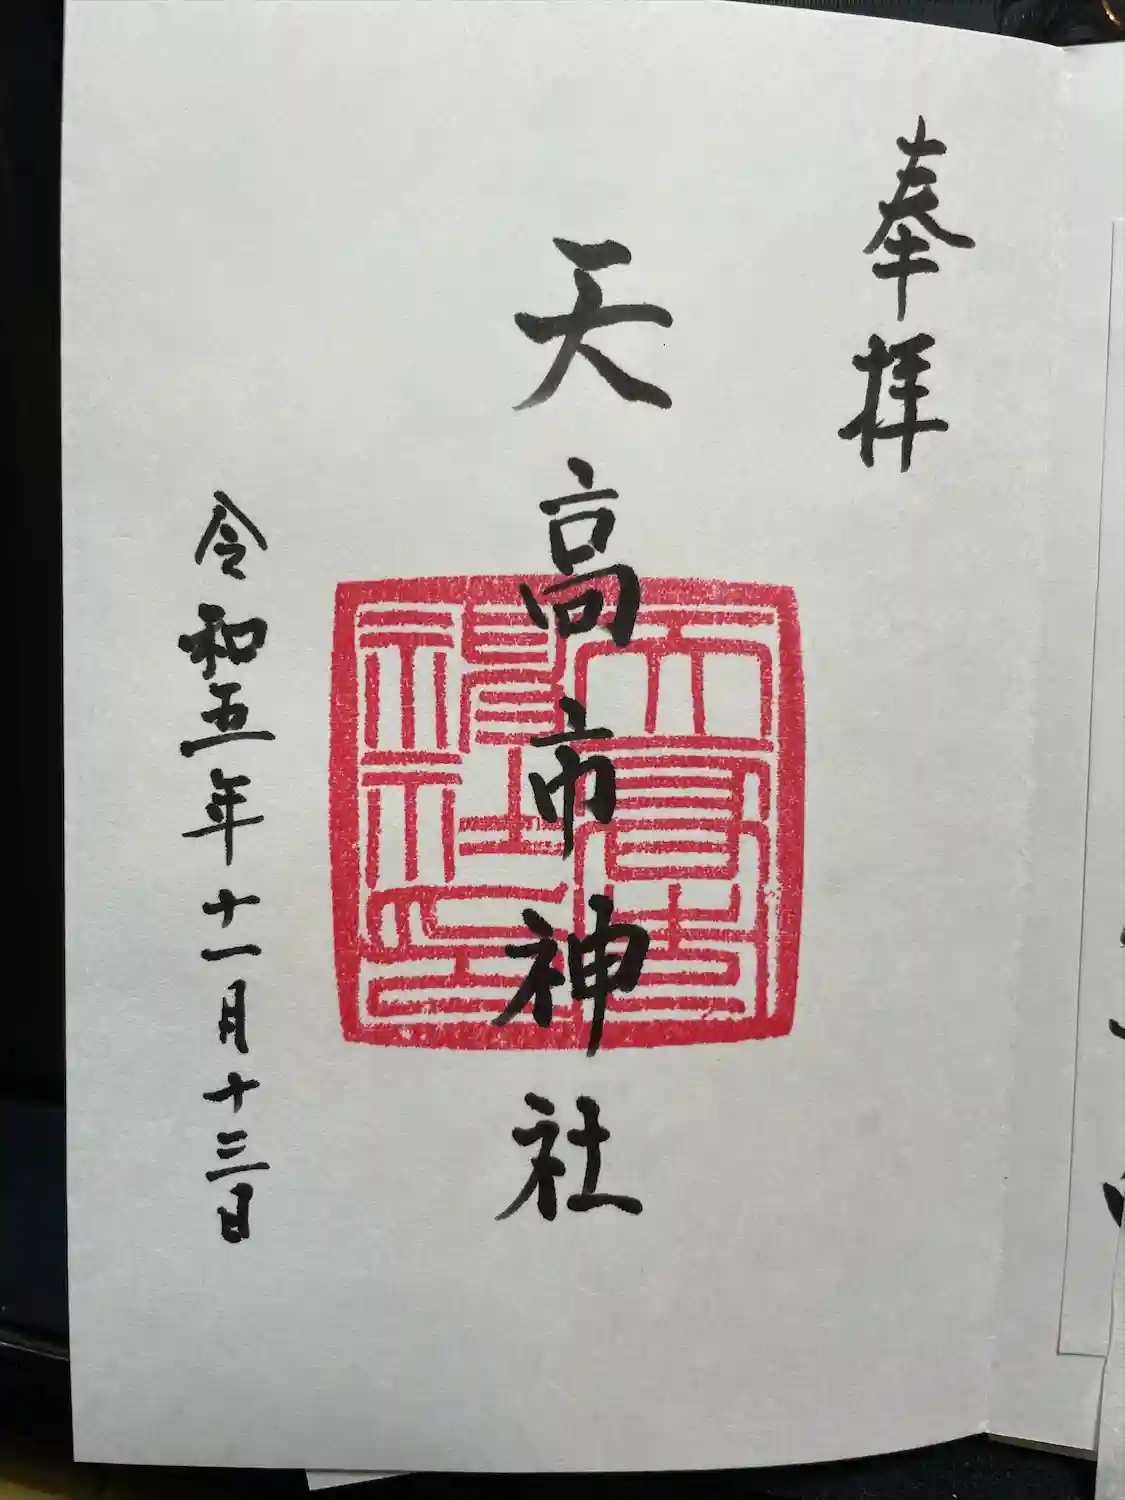 奉拝
天高市神社
天高市神社印
令和五年十一月十三日